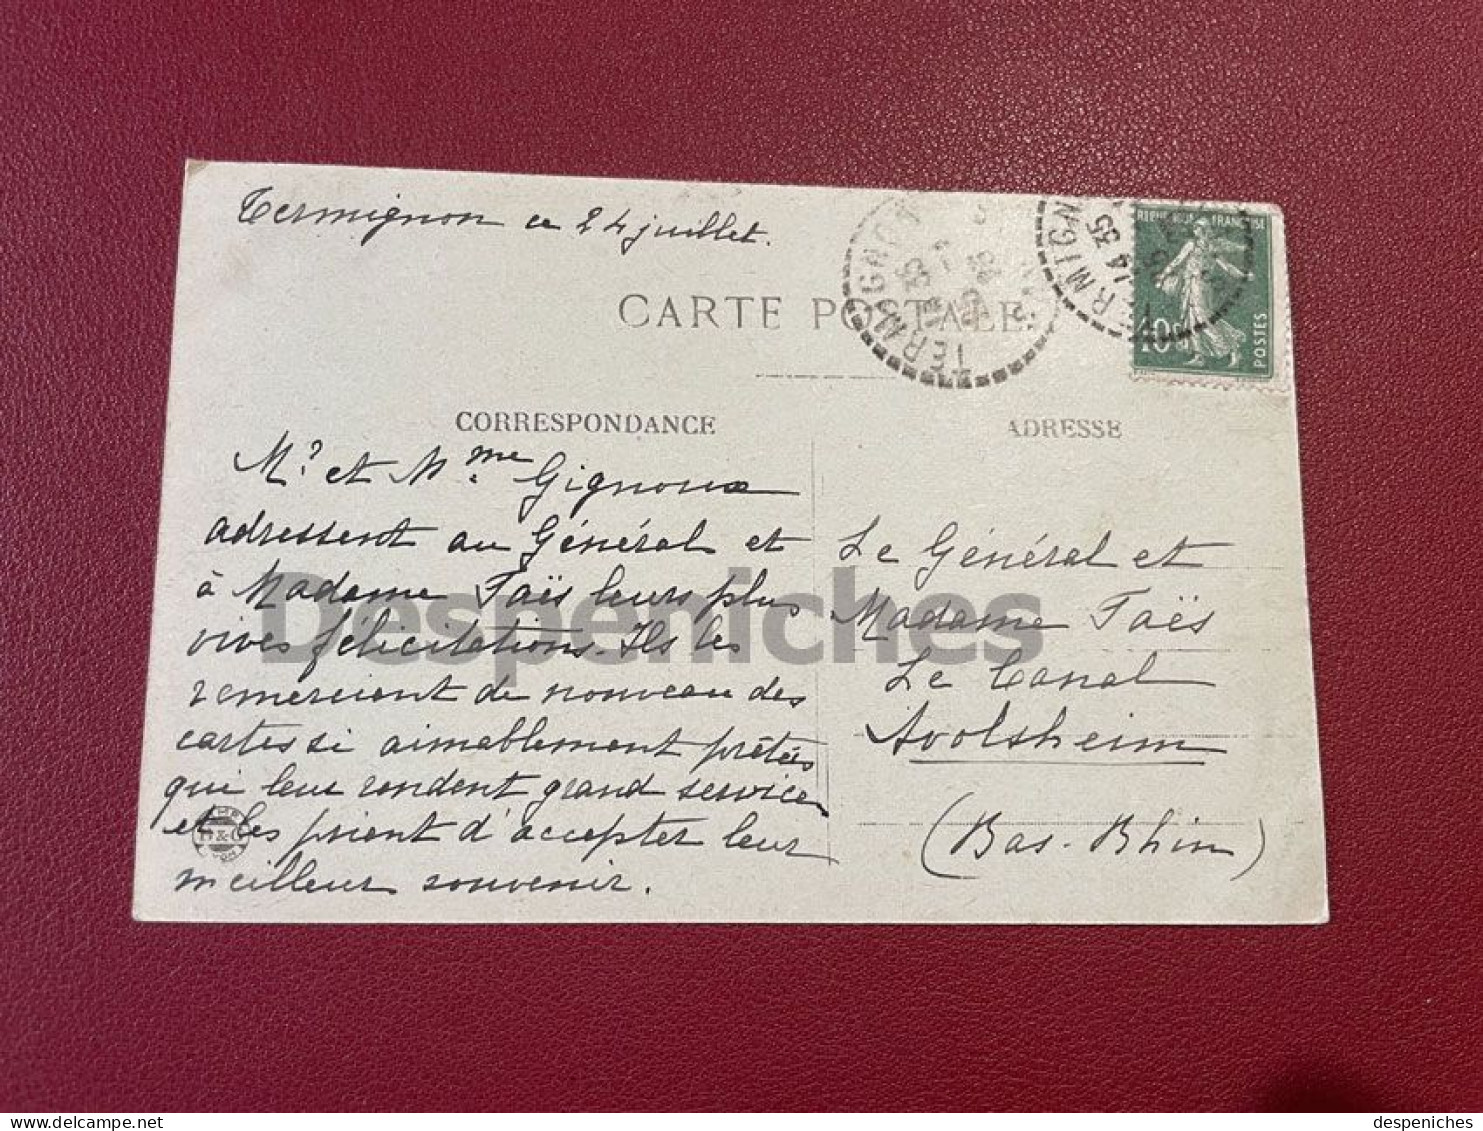 Termignon ce 24 juillet.
CARTE POSTALE
RÉPUBLIQUE FRANÇAISE
10c
POSTES
TERMIGNON
14 35
CORRESPONDANCE
ADRESSE
Mr et Mme Gignoux
adressent au Général et
à Madame Taës leurs plus
vives félicitations. Ils les
remercient de nouveau des
cartes si aimablement prêtées
qui leur rendent grand service
et les prient d'accepter leur
meilleur souvenir.
Le Général et
Madame Taës
Le Canal
Avolsheim
(Bas-Rhin)
Despeniches
delcampe.net
despeniches